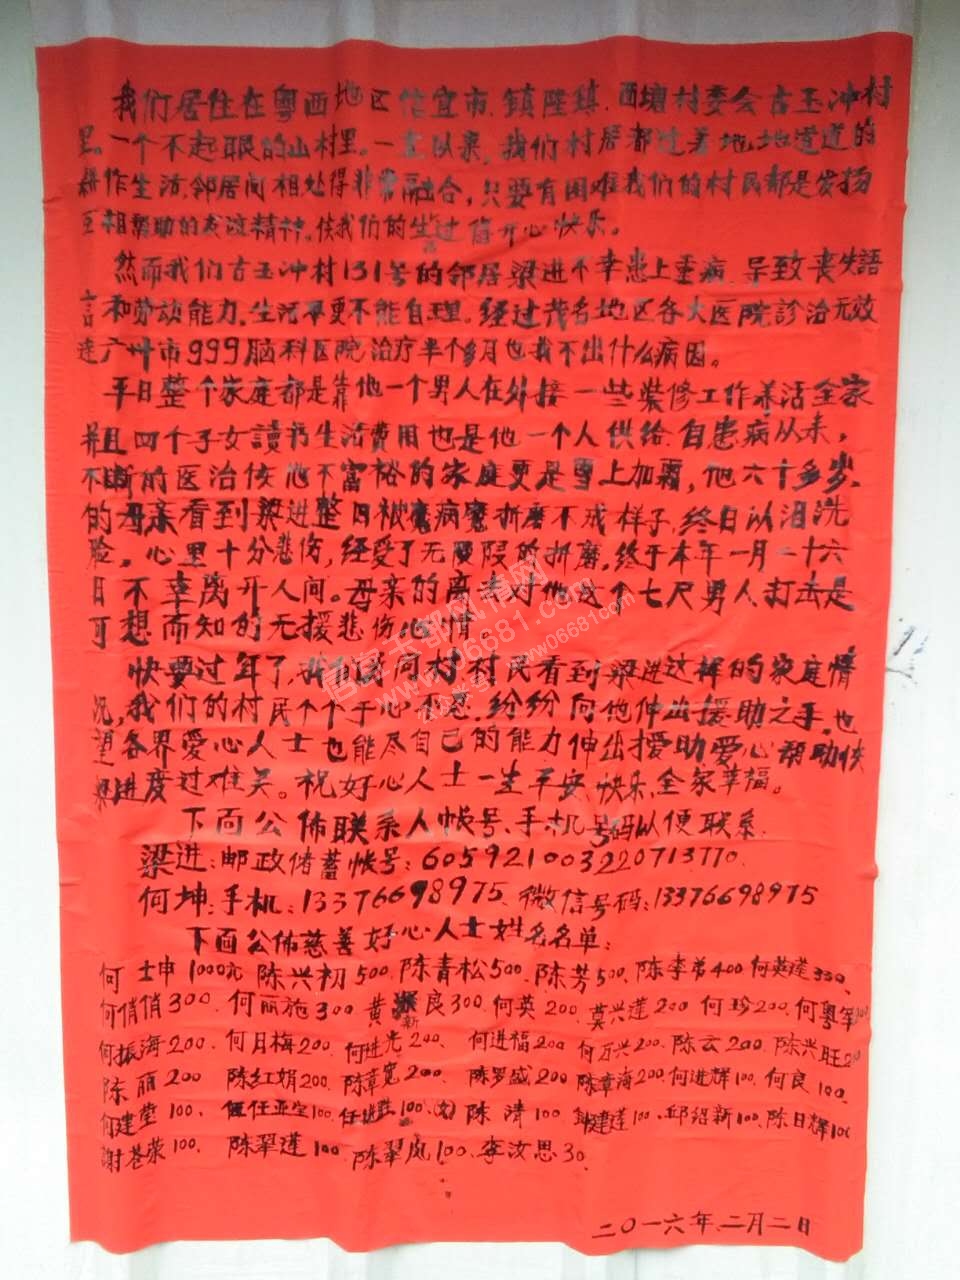 我们居住在粤西地区信宜市、镇隆镇、西塘村委会古玉冲村
里。一个不起眼的山村里。一直以来,我们村居都过着地地道道的
耕作生活,邻居间相处得非常融合,只要有困难我们的村民都是发扬
互相帮助的友谊精神。使我们的生过得开心快乐。
然而我们古玉冲村131号的邻居梁进不幸患上重病、导致丧失語
言和劳动能力,生活更不能自理。经过茂名地区各大医院診治无效
连广州市999脑科医院治疗半个多月也找不出什么病因。
平日整个家庭都是靠他一个男人在外接一些装修工作养活全家
并且四个子女讀书生活費用也是他一个人供给.自患病以来,
不断的医治使他不富裕的家庭更是雪上加霜,他六十多岁、
的母亲看到梁进整日被病魔折磨不成样子,终日以泪洗
脸,心里十分悲伤,经受了无限的折磨,终于本年一月二十六
日不幸离开人间。母亲的离去对他这个七尺男人打击是
可想而知的无援悲伤心情。
快要过年了,我们同村村民看到梁进这样的家庭情
况,我们的村民个个于心不忍.纷纷向他伸出援助之手,也
望各界爱心人士也能尽自己的能力伸出援助爱心帮助
梁进度过难关。祝好心人士一生平安、快乐、全家幸福。
下面公佈联系人帐号、手机号码以便联系.
梁进:邮政储蓄帐号:605921003220713770.
何坤:手机:13376698975、微信号码:13376698975
下面公佈慈善好心人士姓名名单:
何士坤1000元 陈兴初500、陈青松500、陈芳500、陈李弟400 何英莲330、
何俏俏300、何丽施300 黄新良300、何英200、莫兴莲200、何珍200、何粤
何振海200、何月梅200 何进光200、何进福200 何万兴200、陈云200、陈兴旺
陈丽200 陈红娟200、陈章宽200、陈罗盛200 陈章海200、何进辉100、何良100、
何建堂100、任亚宝100、任进胜100、陈清100 建莲100、邱绍新100、陈日辉100
谢苍荣100、陈翠莲100、陈翠凤100、李汝思30、
二〇一六年、二月二日
信宜玉都风情网
www.06681.com
公众号:www06681com